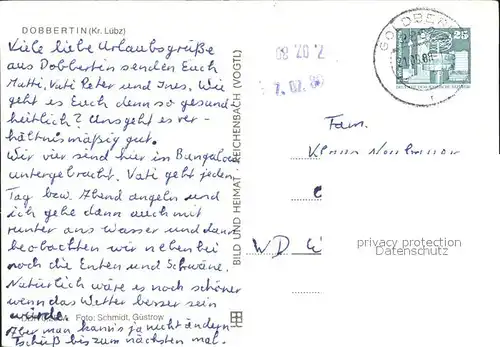 DOBBERTIN (Kr. Lübz)
Viele liebe Urlaubsgrüße
aus Dobbertin senden Euch
Mutti, Vati Peter und Ines. Wie
geht es Euch denn so gesund
heitlich? Uns geht es ver-
hältnismäßig gut.
Wir vier sind hier im Bungalow
untergebracht. Vati geht jeden
Tag bzw. Abend angeln und
ich gehe dann auch mit
runter ans Wasser und dann
beobachten wir nebenbei
noch die Enten und Schwäne.
Natürlich wäre es noch schöner
wenn das Wetter besser sein
würde.
Foto: Schmidt, Güstrow
Aber man kann's ja nicht ändern
Tschüß bis zum nächsten mal.
BILD UND HEIMAT REICHENBACH (VOGTL)
7. 07. 80
7. 07. 80
GOLDBERG
25
Fam.
Klaus
privacy protection
Datenschutz